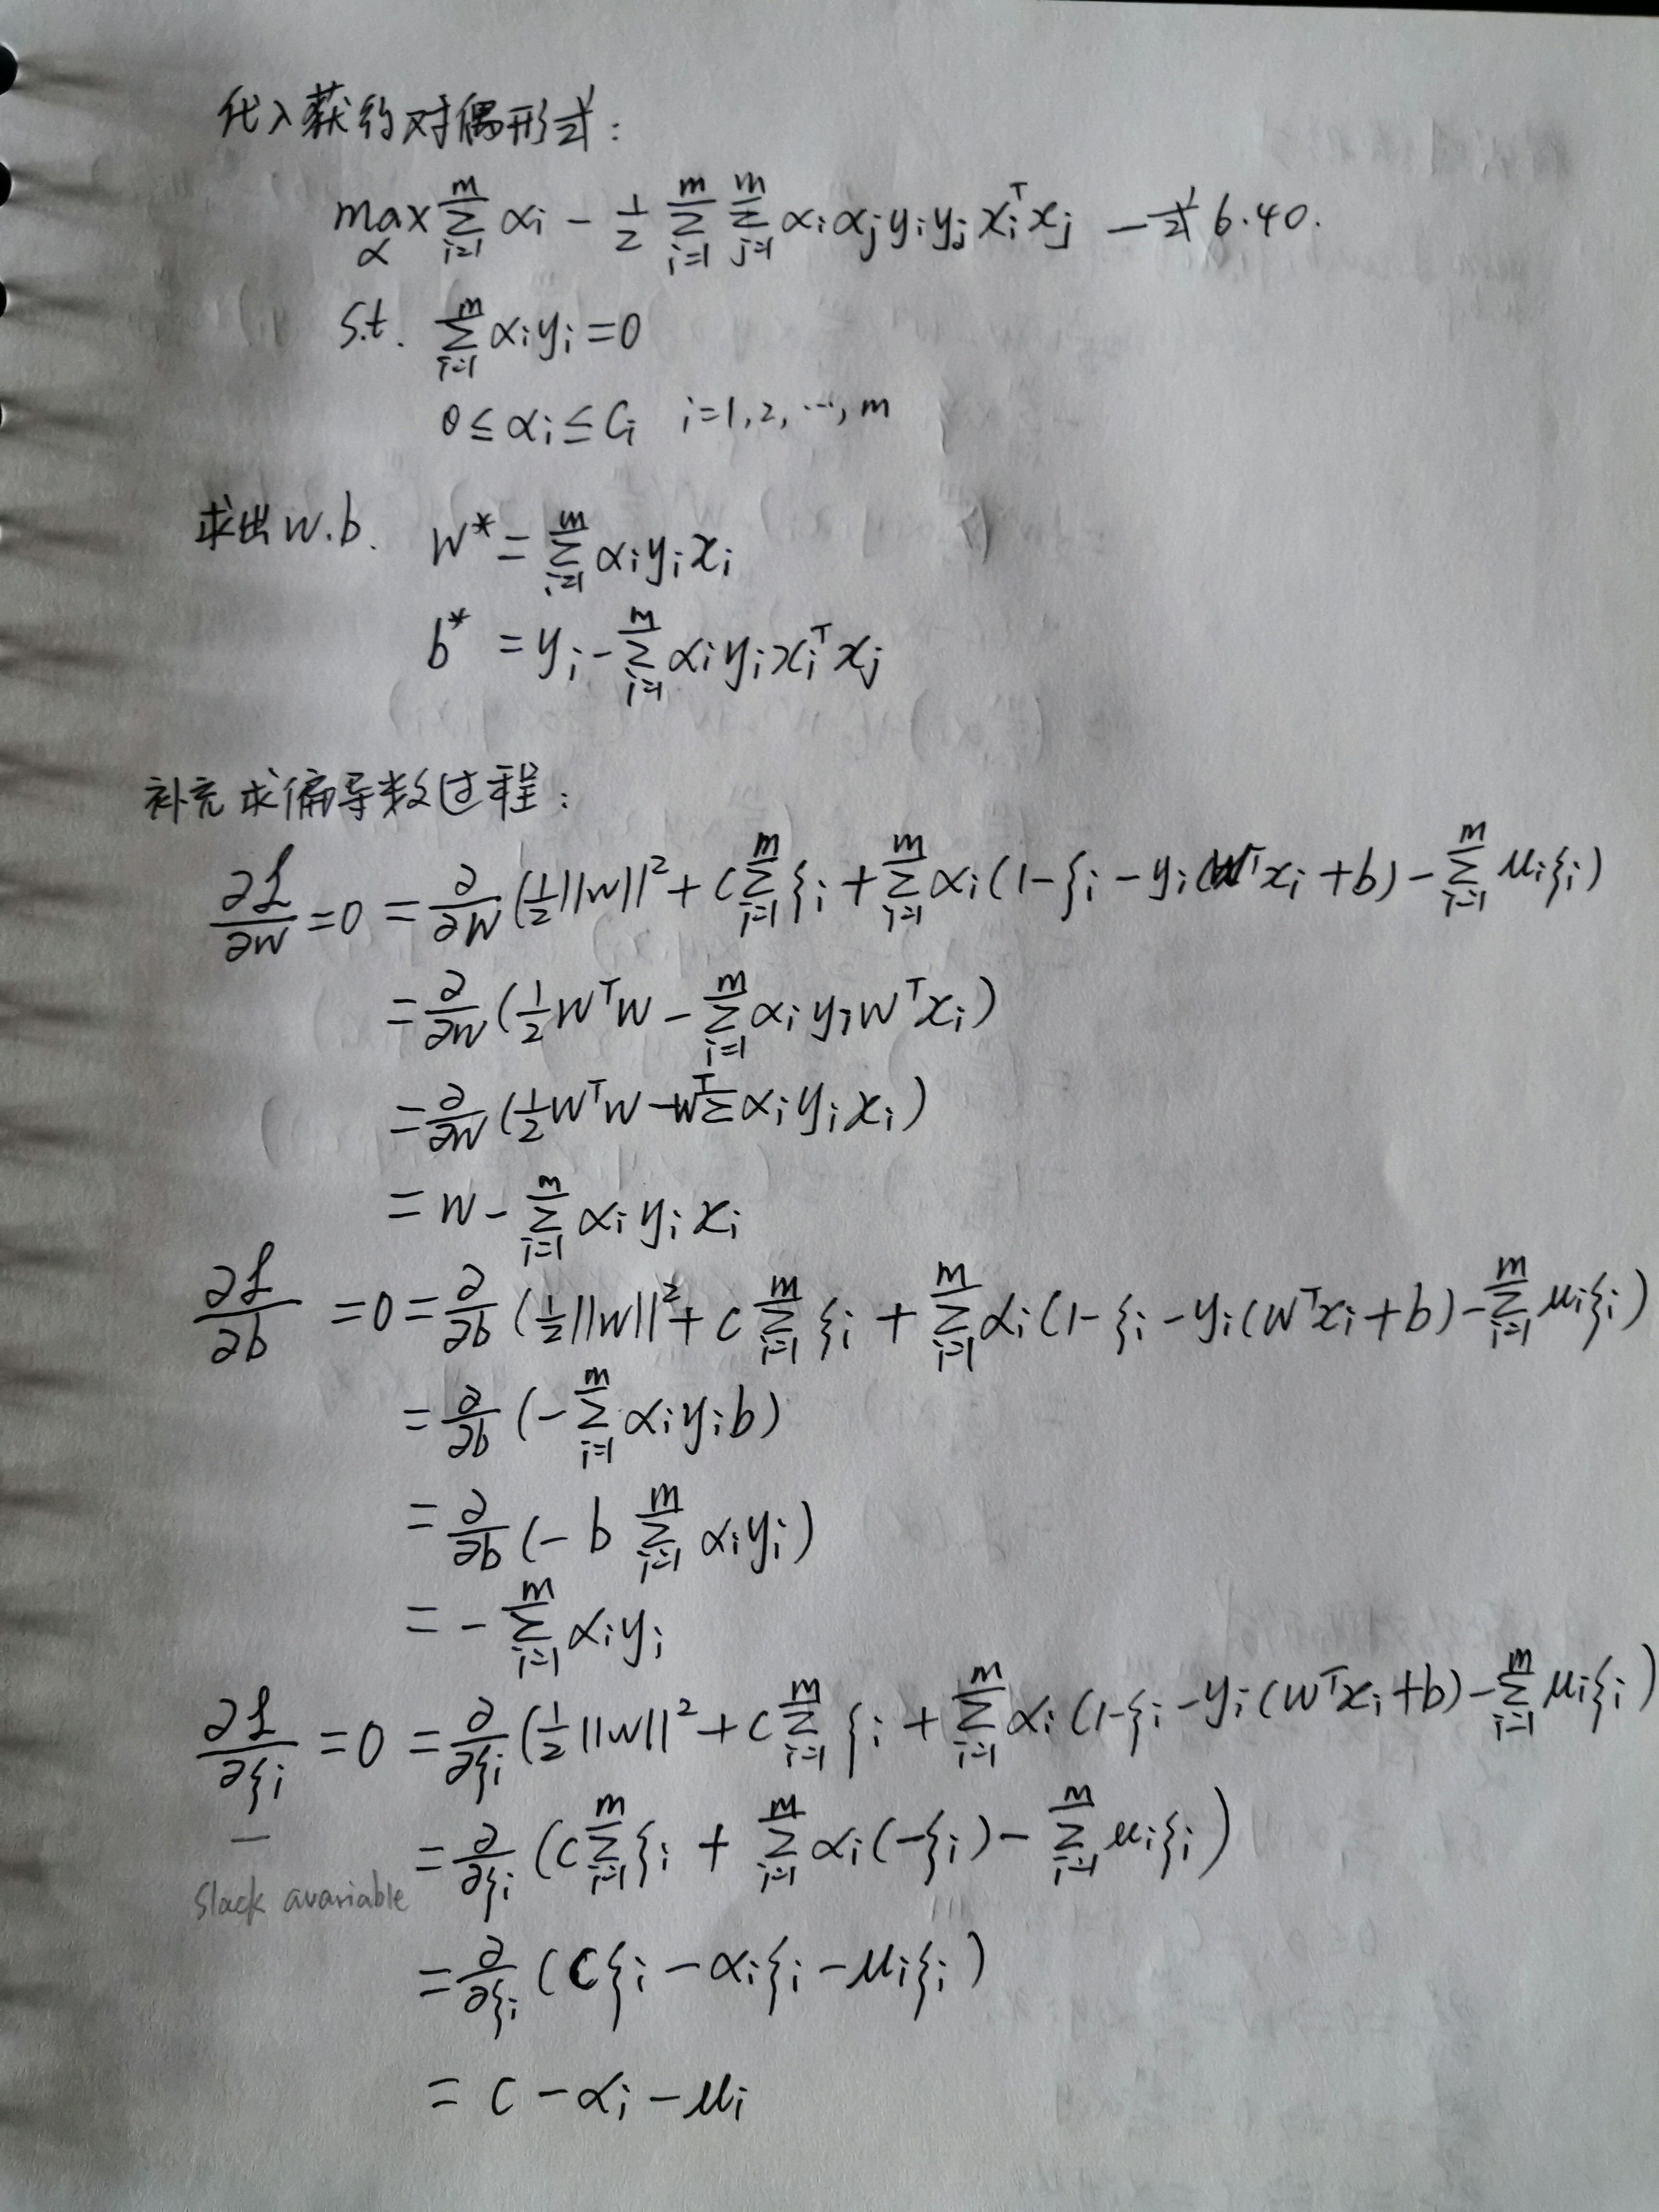 代入获得对偶形式：
max_α ∑_{i=1}^{m} α_i - 1/2 ∑_{i=1}^{m} ∑_{j=1}^{m} α_i α_j y_i y_j x_i^T x_j — 式6.40.
s.t. ∑_{i=1}^{m} α_i y_i = 0
0 ≤ α_i ≤ C_i i=1,2,…,m
求出w.b. w* = ∑_{i=1}^{m} α_i y_i x_i
b* = y_i - ∑_{i=1}^{m} α_i y_i x_i^T x_j
补充求偏导数过程：
∂L/∂w = 0 = ∂/∂w (1/2 ||w||² + C ∑_{i=1}^{m} ξ_i + ∑_{i=1}^{m} α_i (1 - ξ_i - y_i (w^T x_i + b) - ∑_{i=1}^{m} μ_i ξ_i)
= ∂/∂w (1/2 w^T w - ∑_{i=1}^{m} α_i y_i w^T x_i)
= ∂/∂w (1/2 w^T w - w^T ∑ α_i y_i x_i)
= w - ∑_{i=1}^{m} α_i y_i x_i
∂L/∂b = 0 = ∂/∂b (1/2 ||w||² + C ∑_{i=1}^{m} ξ_i + ∑_{i=1}^{m} α_i (1 - ξ_i - y_i (w^T x_i + b) - ∑_{i=1}^{m} μ_i ξ_i)
= ∂/∂b (- ∑_{i=1}^{m} α_i y_i b)
= ∂/∂b (- b ∑_{i=1}^{m} α_i y_i)
= - ∑_{i=1}^{m} α_i y_i
∂L/∂ξ_i = 0 = ∂/∂ξ_i (1/2 ||w||² + C ∑_{i=1}^{m} ξ_i + ∑_{i=1}^{m} α_i (1 - ξ_i - y_i (w^T x_i + b) - ∑_{i=1}^{m} μ_i ξ_i)
= ∂/∂ξ_i (C ∑_{i=1}^{m} ξ_i + ∑_{i=1}^{m} α_i (-ξ_i) - ∑_{i=1}^{m} μ_i ξ_i)
Slack avariable
= ∂/∂ξ_i (C ξ_i - α_i ξ_i - μ_i ξ_i)
= C - α_i - μ_i